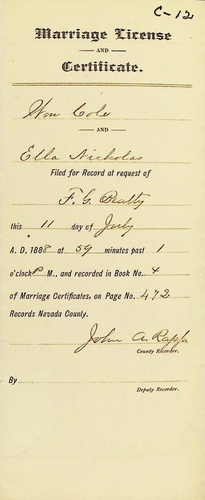 C-12
Marriage License
AND
Certificate.
Wm Cole
AND
Ella Nicholas
Filed for Record at request of
F. G. Beatty
this 11 day of July
A. D. 1888 at 59 minutes past 1
o'clock P M., and recorded in Book No. 4
of Marriage Certificates, on Page No. 472
Records Nevada County.
John A. Rapp
County Recorder.
By
Deputy Recorder.